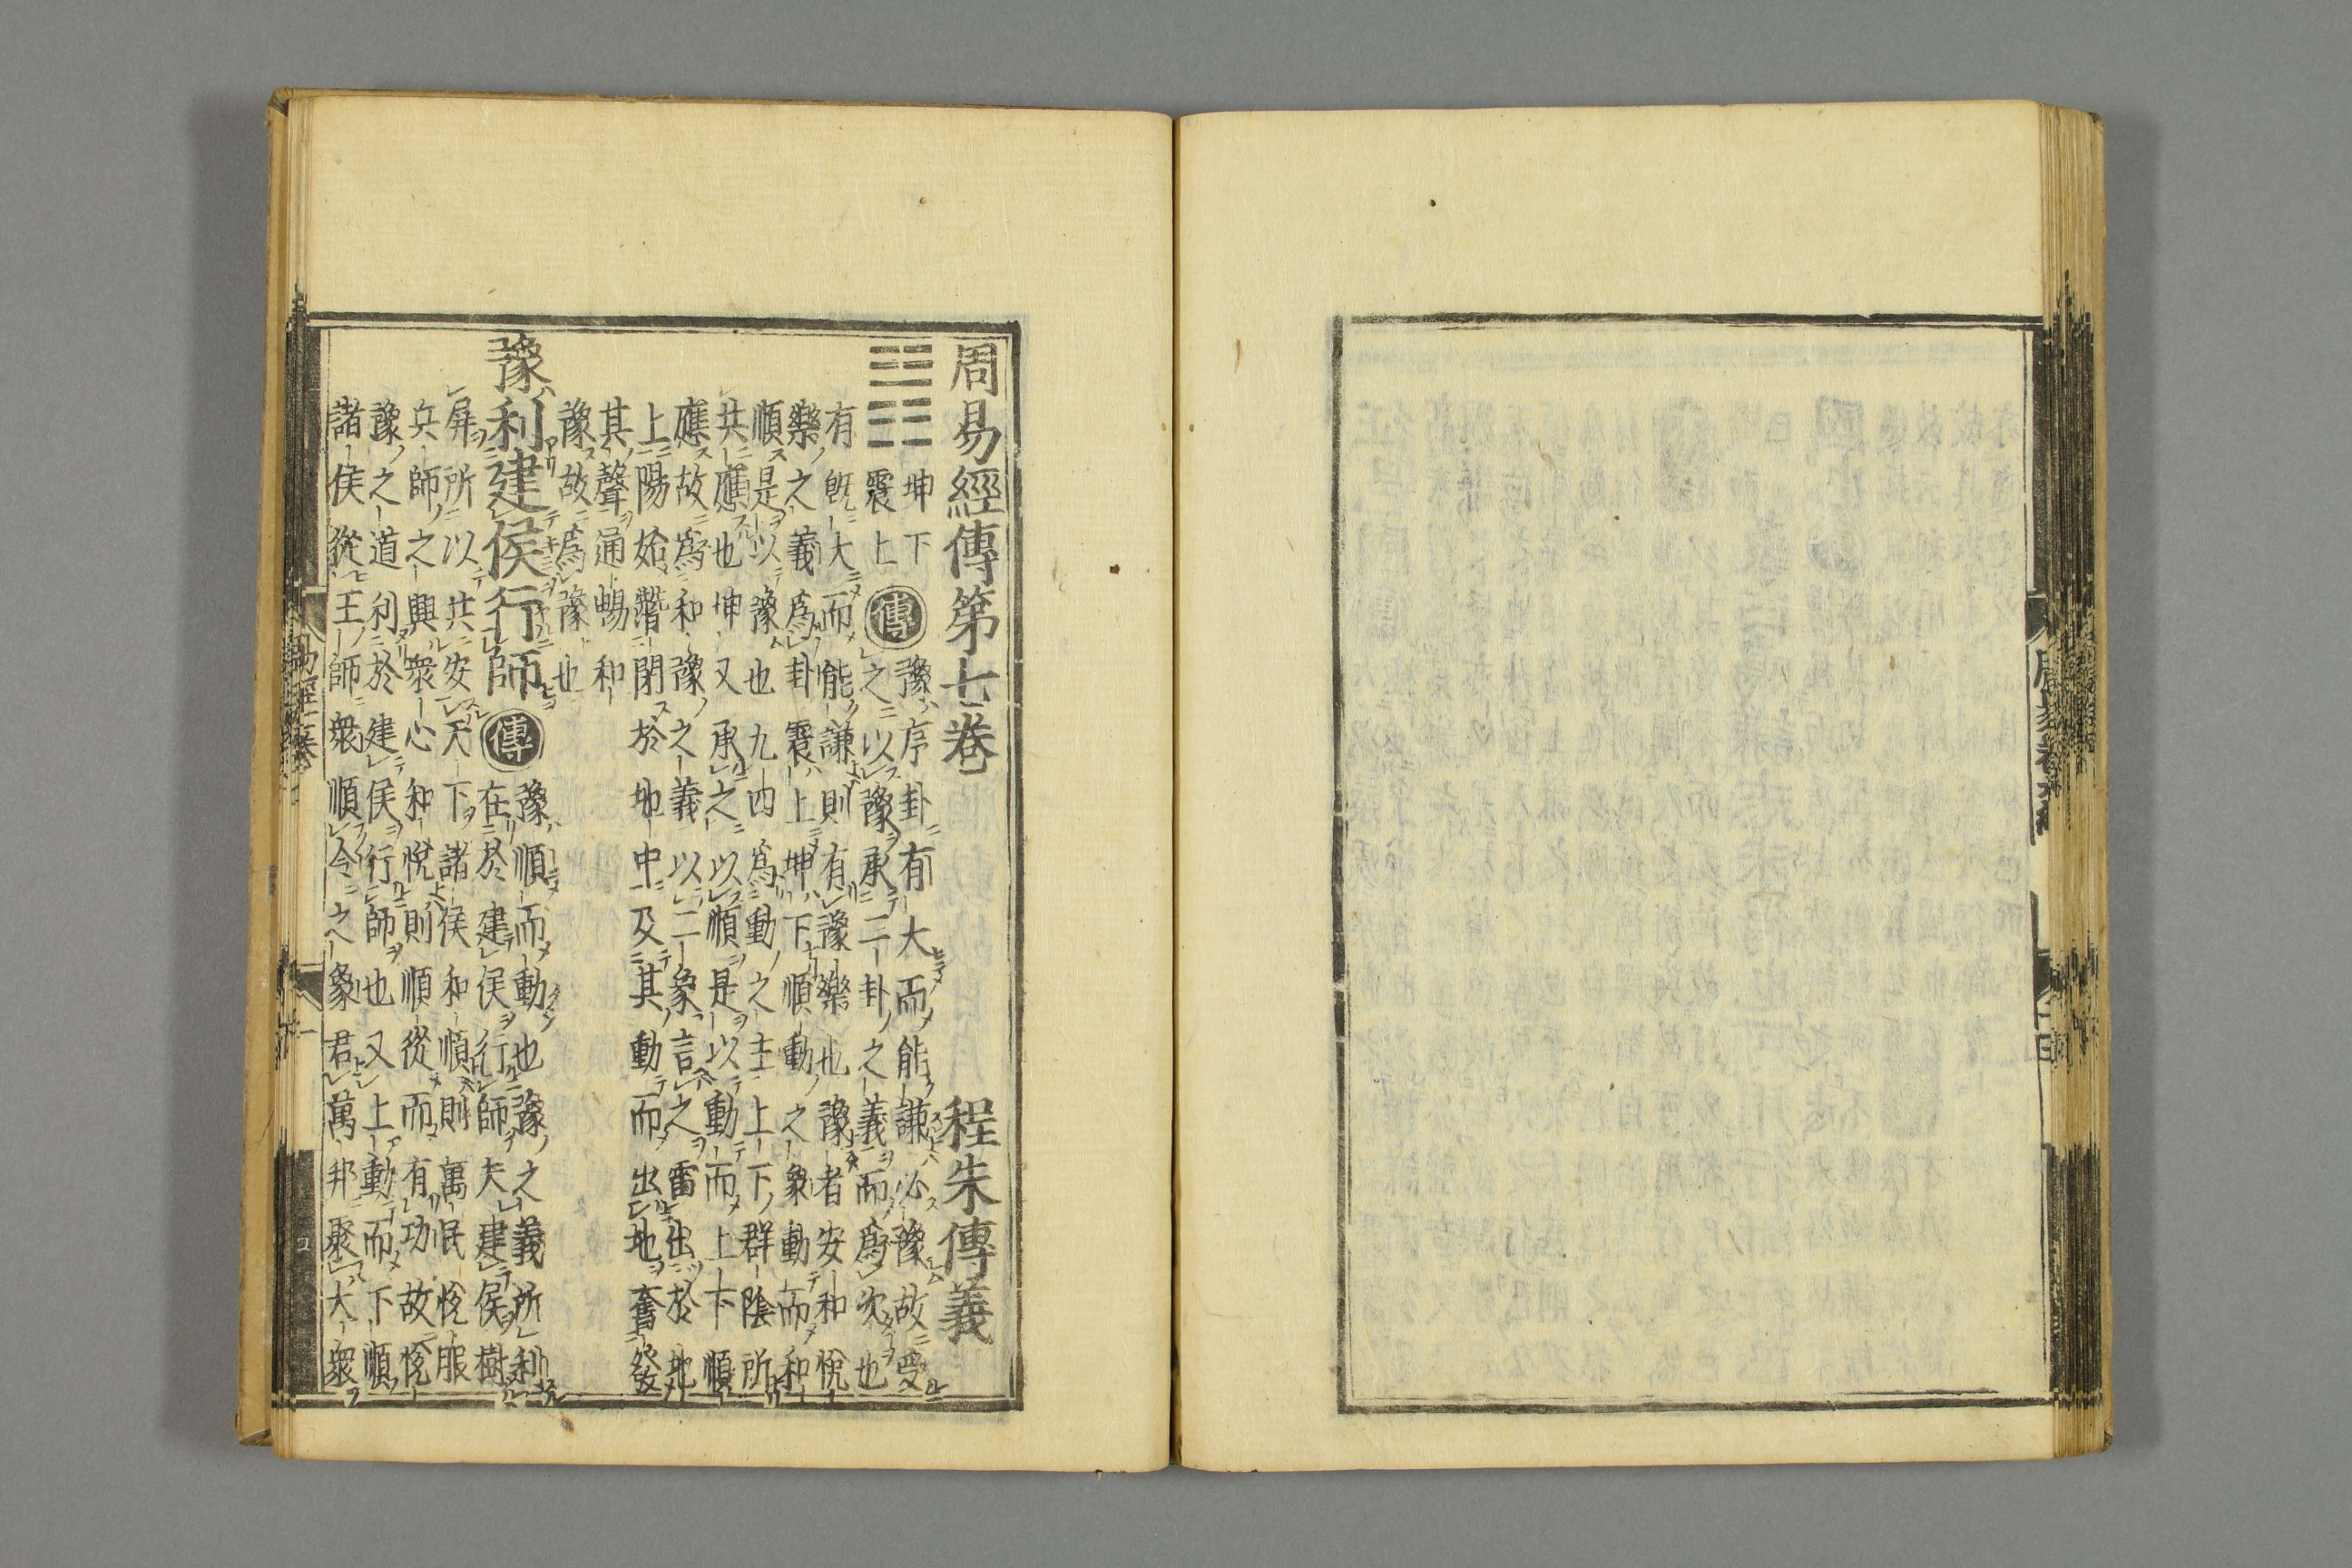 周易經傳第七卷 程朱傳義
坤下
震上
傳
豫序卦有大而能謙必豫故受
之以豫承二卦之義而爲次也
有旣大而能謙則有豫樂也豫者安和悅
樂之義爲卦震上坤下順動之象動而和
順是以豫也九四爲動之主上下群陰所
共應也坤又承之以順是以動而上下順
應故爲和豫之義以二象言之雷出於地
上陽始潛閉於地中及其動而出地奮發
其聲通暢和
豫故爲豫也
豫利建侯行師
傳
豫順而動也豫之義所利
在於建侯行師夫建侯樹
屏所以共安天下諸侯和順則萬民悅服
兵師之興衆心和悅則順從而有功故悅
豫之道利於建侯行師也又上動而下順
諸侯從王師衆順令之象君萬邦聚大衆